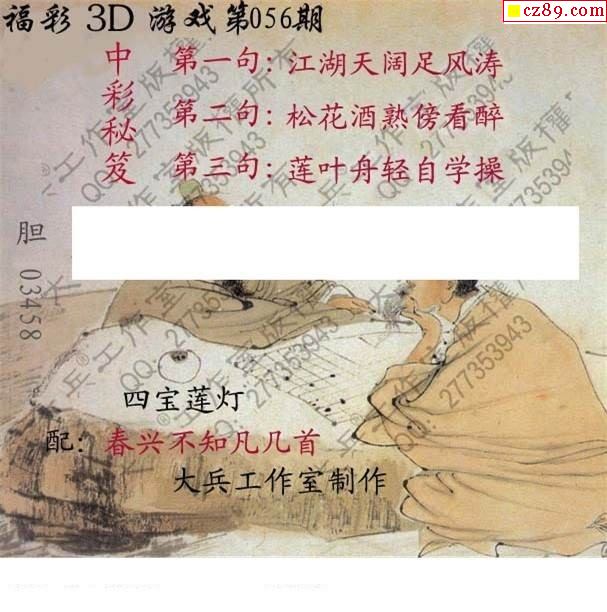 福彩 3D 游戏第056期
cz89.com
中彩秘笈
第一句：江湖天阔足风涛
第二句：松花酒熟傍看醉
第三句：莲叶舟轻自学操
胆 03458
四宝莲灯
配：春兴不知凡几首
大兵工作室制作
大兵®工作室版权所有
QQ: 277353943